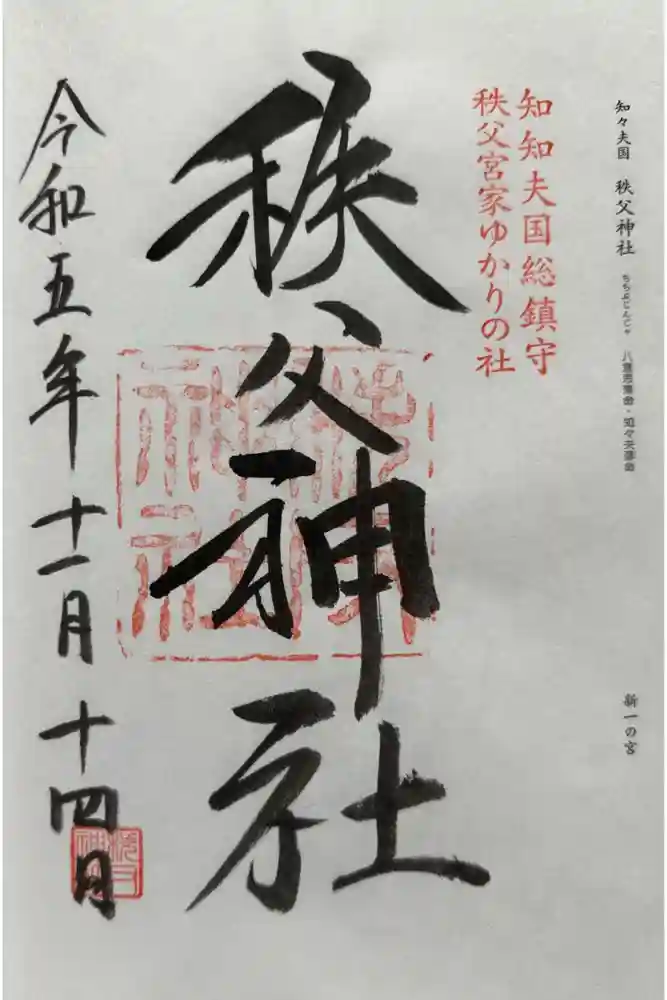 知々夫国 秩父神社 ちちぶじんじゃ 八意思兼命・知々夫彦命 新一の宮
知知夫国総鎮守
秩父宮家ゆかりの社
秩父神社
令和五年十一月十四日